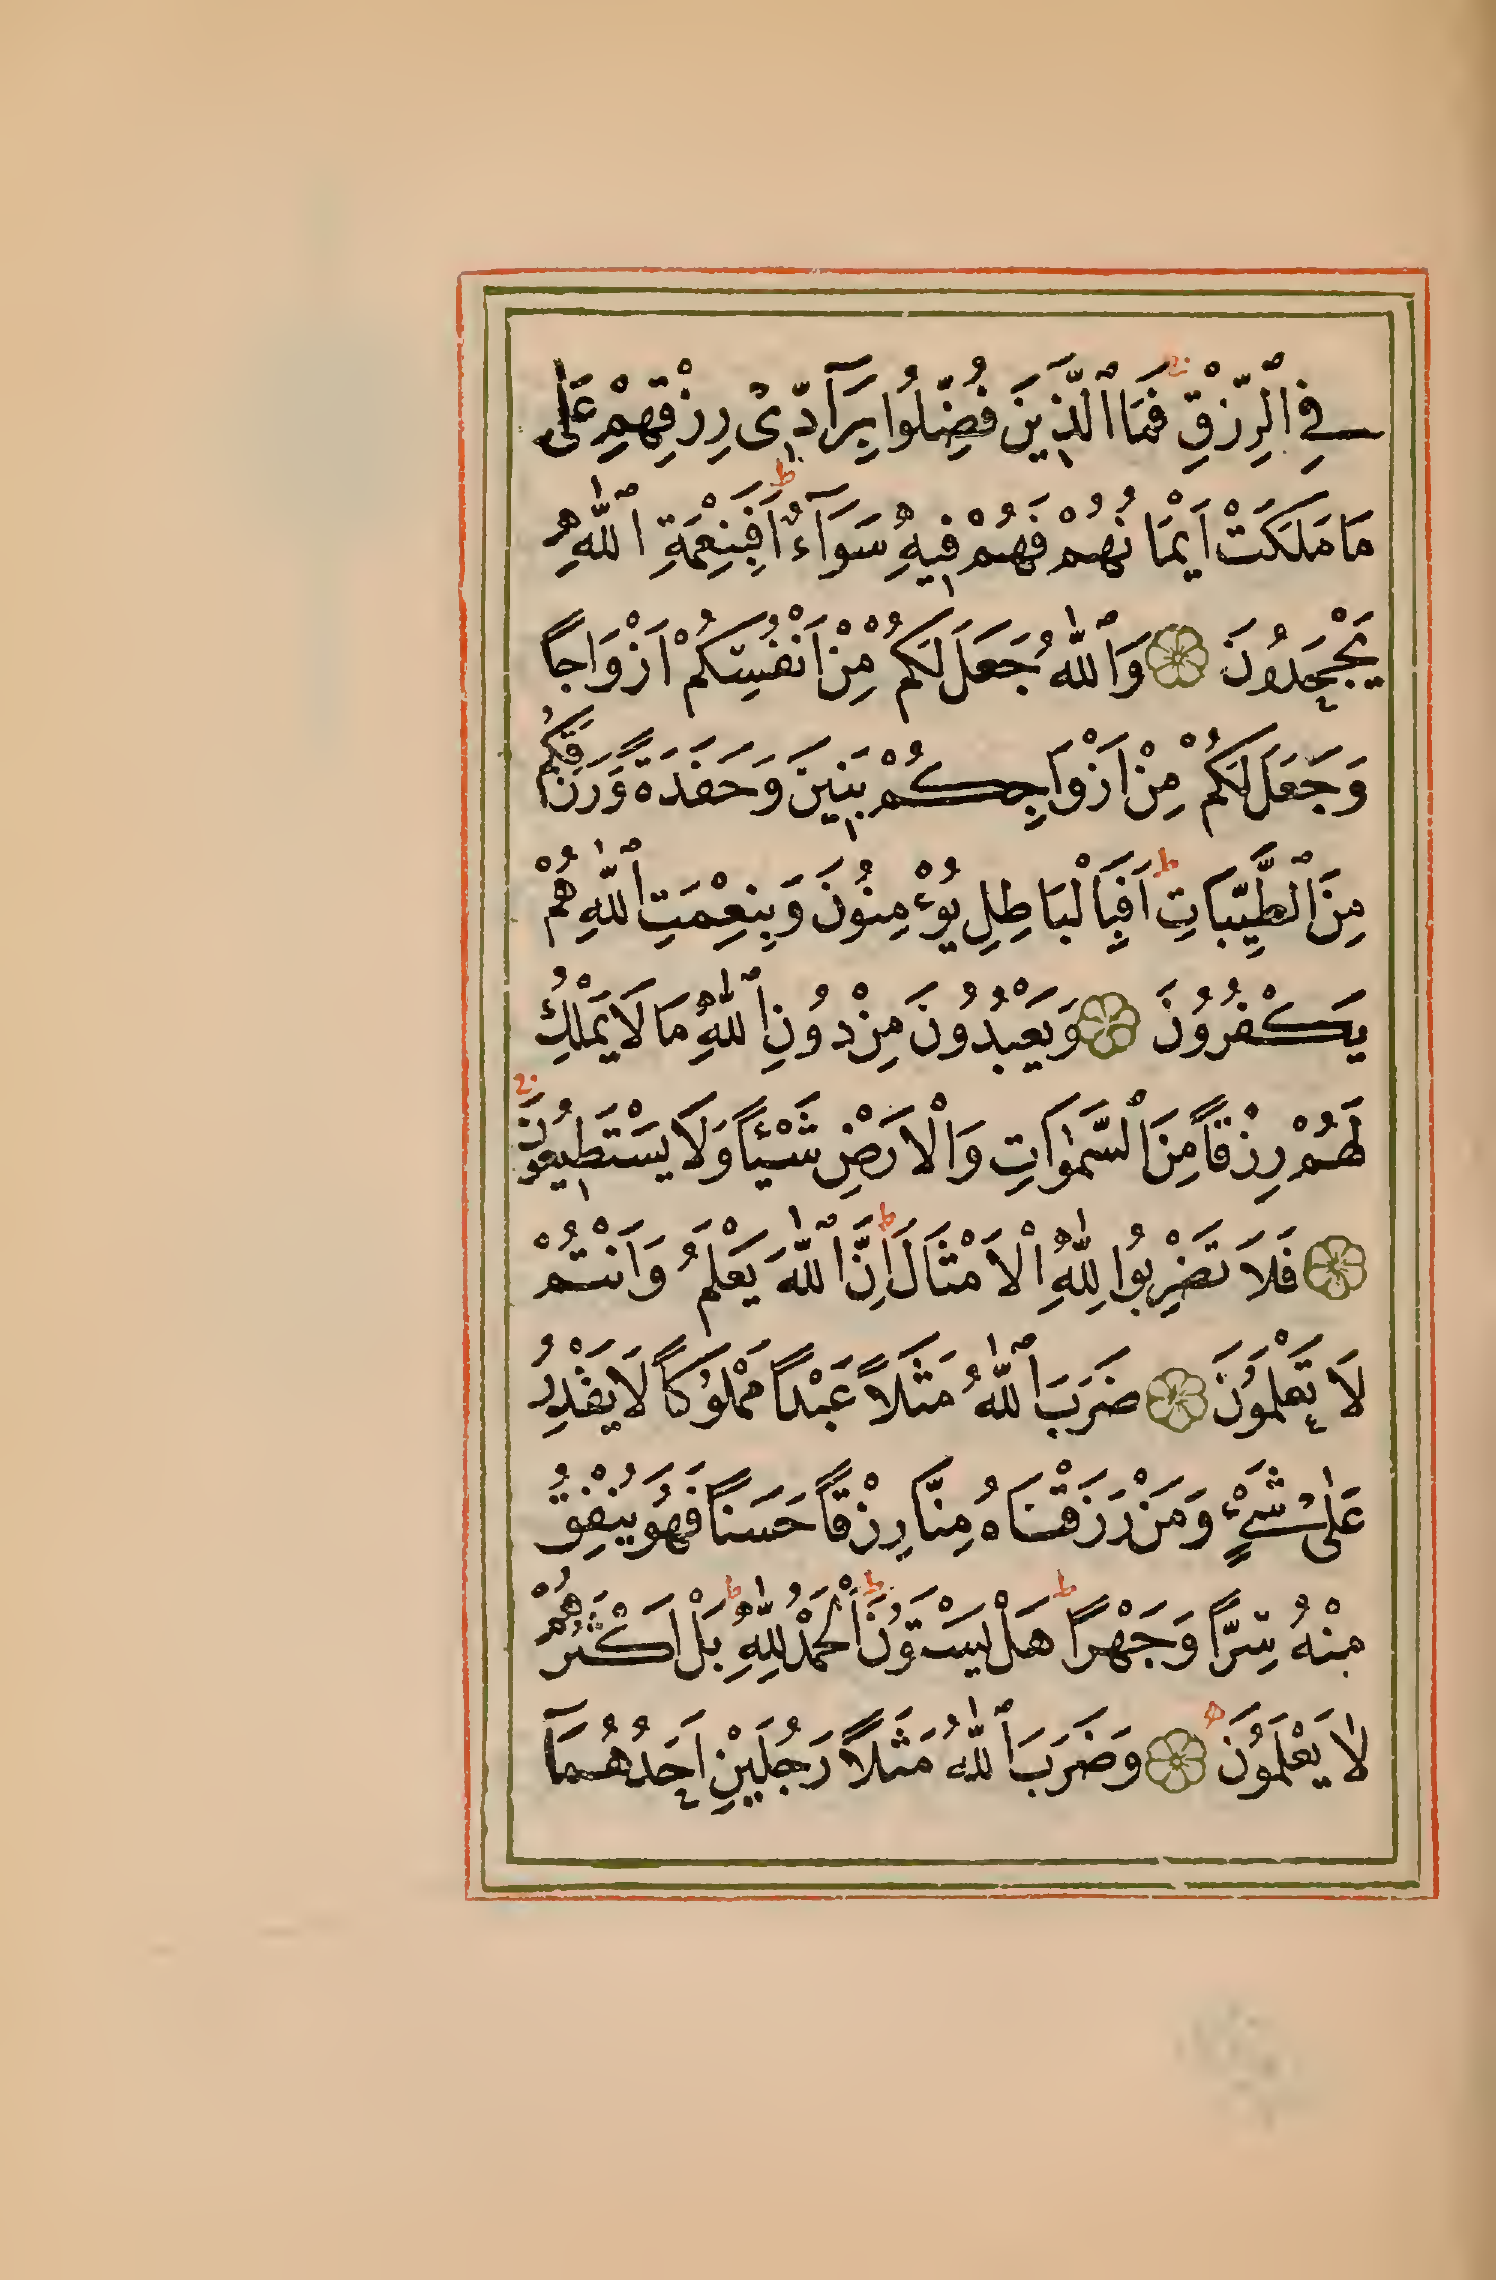 فِي ٱلرِّزْقِ ۚ فَمَا ٱلَّذِينَ فُضِّلُوا بِرَآدِّى رِزْقِهِمْ عَلٰى
مَا مَلَكَتْ اَيْمَانُهُمْ فَهُمْ فِيهِ سَوَآءٌ ؕ اَفَبِنِعْمَةِ ٱللّٰهِ
يَجْحَدُونَ ۝ وَٱللّٰهُ جَعَلَ لَكُمْ مِنْ اَنْفُسِكُمْ اَزْوَاجًا
وَجَعَلَ لَكُمْ مِنْ اَزْوَاجِكُمْ بَنِينَ وَحَفَدَةً وَرَزَقَكُمْ
مِنَ ٱلطَّيِّبَاتِ ؕ اَفَبِالْبَاطِلِ يُؤْمِنُونَ وَبِنِعْمَتِ ٱللّٰهِ هُمْ
يَكْفُرُونَ ۝ وَيَعْبُدُونَ مِنْ دُونِ ٱللّٰهِ مَا لَا يَمْلِكُ
لَهُمْ رِزْقًا مِنَ ٱلسَّمٰوَاتِ وَالْاَرْضِ شَيْئًا وَلَا يَسْتَطِيعُونَ ۚ
۝ فَلَا تَضْرِبُوا لِلّٰهِ الْاَمْثَالَ ؕ اِنَّ ٱللّٰهَ يَعْلَمُ وَاَنْتُمْ
لَا تَعْلَمُونَ ۝ ضَرَبَ ٱللّٰهُ مَثَلًا عَبْدًا مَمْلُوكًا لَا يَقْدِرُ
عَلٰى شَىْءٍ وَمَنْ رَزَقْنَاهُ مِنَّا رِزْقًا حَسَنًا فَهُوَ يُنْفِقُ
مِنْهُ سِرًّا وَجَهْرًا ؕ هَلْ يَسْتَوُونَ ؕ اَلْحَمْدُ لِلّٰهِ ؕ بَلْ اَكْثَرُهُمْ
لَا يَعْلَمُونَ ۝ وَضَرَبَ ٱللّٰهُ مَثَلًا رَجُلَيْنِ اَحَدُهُمَآ